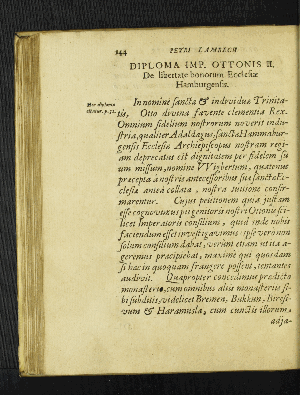 144 PETRI LAMBECII
DIPLOMA IMP. OTTONIS II.
De libertate bonorum Ecclesiæ
Hamburgensis.
In nomine sancta & individuæ Trinita-
tis, Otto divina favente clementia Rex.
Omnium fidelium nostrorum noverit indu-
stria, qualiter Adaldagus, sanctæ Hammabur-
gensis Ecclesiæ Archiepiscopus nostram regi-
am deprecatus est dignitatem per fidelem su
um missum, nomine VVigbertum, quatenus
præcepta à nostris antecessoribus suæ sanctæ Ec-
clesiæ antea collata, nostra tuitione confir-
marentur. Cujus petitionem quia justam
esse cognovimus
licet Imperatoris consilium, quid inde nobis
faciendum esset investigavimus: ipse vero non
solùm consilium dabat, verùm etiam ut ita a-
geremus præcipiebat, maximè qui quosdam
si hæc in quoquam frangere possint, tentantes
audivit. Quapropter concedimus prædicto
monasterio, cum omnibus aliis monasteriis si-
bi subditis, videlicet Bremen, Bukkun,
& Haramusla, cum cunctis illorum
adja-